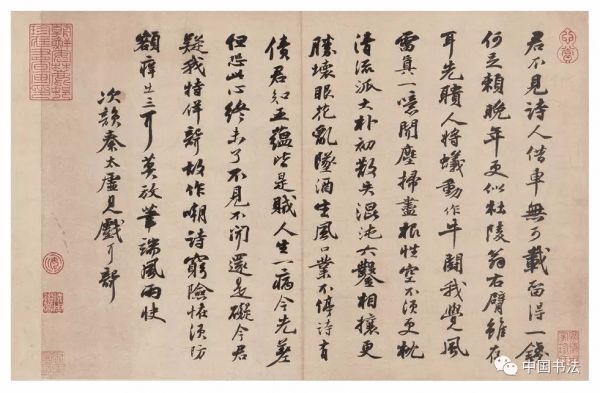 君不見詩人借車無可載留得一錢
何足賴晚年更似杜陵翁右臂雖存
耳先聵人將蟻動作牛鬭我覺風
雷真一噫聞塵掃盡根性空不須更枕
清流派大朴初散失混沌六鑿相攘更
勝壞眼花亂墜酒生風口業不停詩有
債君知五蘊皆是賊人生一病今先差
但恐此心終未了不見不聞還是礙今君
疑我特佯聾故作嘲詩窮險怪須防
額癢出三耳莫放筆端風雨快
次韻秦太虛見戲耳聾
中国书法